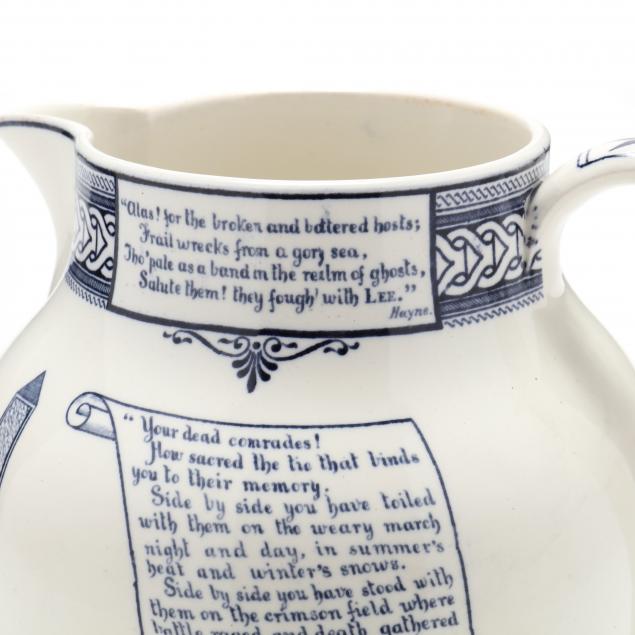 "Alas! for the broken and battered hosts;
Frail wrecks from a gory sea,
Tho' pale as a band in the realm of ghosts,
Salute them! they fough' with LEE."
Hayne.
"Your dead comrades!
How sacred the tie that binds
you to their memory.
Side by side you have toiled
with them on the weary march
night and day, in summer's
heat and winter's snows.
Side by side you have stood with
them on the crimson field where
battle raged and death gathered